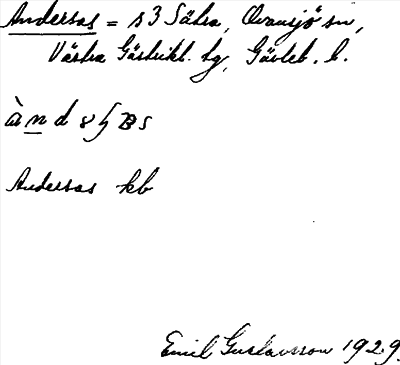 Anderssas = s 3 Sätra, Ovansjö sn,
Västra Gästrikl. tg, Gävleb. l.
Anderssas kb
Emil Gustavsson 1929.